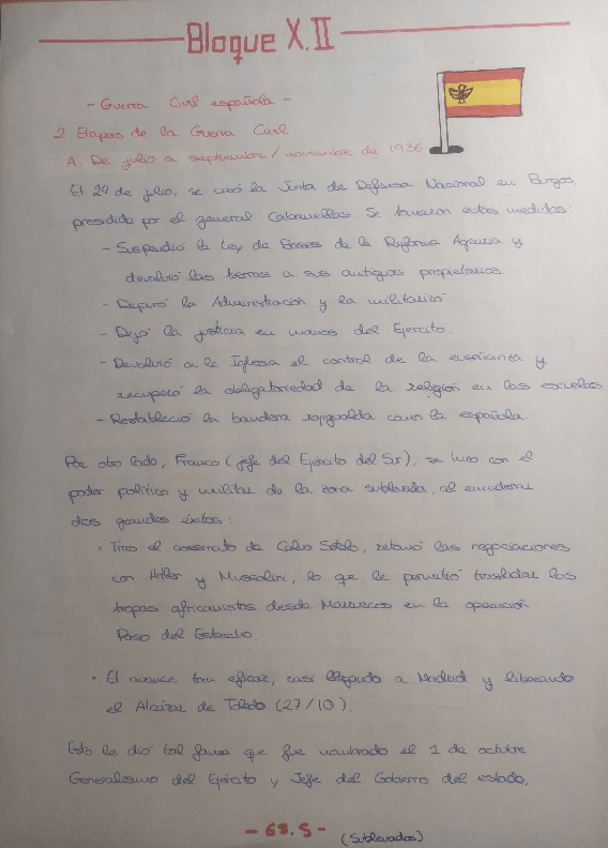 Bloque X.II
- Guerra Civil española -
2 Etapas de la Guerra Civil
A. De julio a septiembre/noviembre de 1936
El 24 de julio, se creó la Junta de Defensa Nacional en Burgos,
presidida por el general Cabanellas. Se tomaron estas medidas:
- Suspendió la Ley de Bases de la Reforma Agraria y
devolvió las tierras a sus antiguos propietarios
- Depuró la Administración y la militarizó.
- Dejó la justicia en manos del Ejército.
- Devolvió a la Iglesia el control de la enseñanza y
recuperó la obligatoriedad de la religión en las escuelas
- Restableció la bandera rojigualda como la española.
Por otro lado, Franco (jefe del Ejército del Sur), se hizo con el
poder político y militar de la zona sublevada, al encadenar
dos grandes éxitos:
• Tras el asesinato de Calvo Sotelo, retomó las negociaciones
con Hitler y Mussolini, lo que le permitió trasladar las
tropas africanistas desde Marruecos en la operación
Paso del Estrecho.
• El avance tan eficaz, casi llegando a Madrid y liberando
el Alcázar de Toledo (27/10).
Esto le dió tal fama que fue nombrado el 1 de octubre
Generalísimo del Ejército y Jefe del Gobierno del estado.
- 68.S -
(Sublevados)